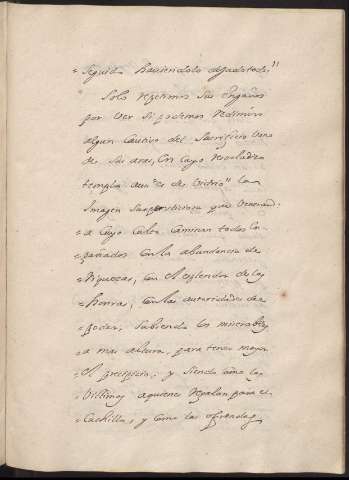 = seguido haviendolo dejado todo"
Solo repetimos sus engaños
por ver si podemos redimir
algun Cautivo del Sacrificio vano
de sus aras, en cuyo resvaladizo
templo aun es de vidrio" la
Imagen supersticiosa que veneran.
= a cuyo culto caminan todos
= pañados con la abundancia de
= riquezas, con el esplendor de los
= honras, con las autoridades de
= poder, subiendo los miserables
= a mas altura, para tener mayor
= el precipicio, y siendo como las
= Victimas a quienes regalan para el
= Cuchillo, y como las ofrendas